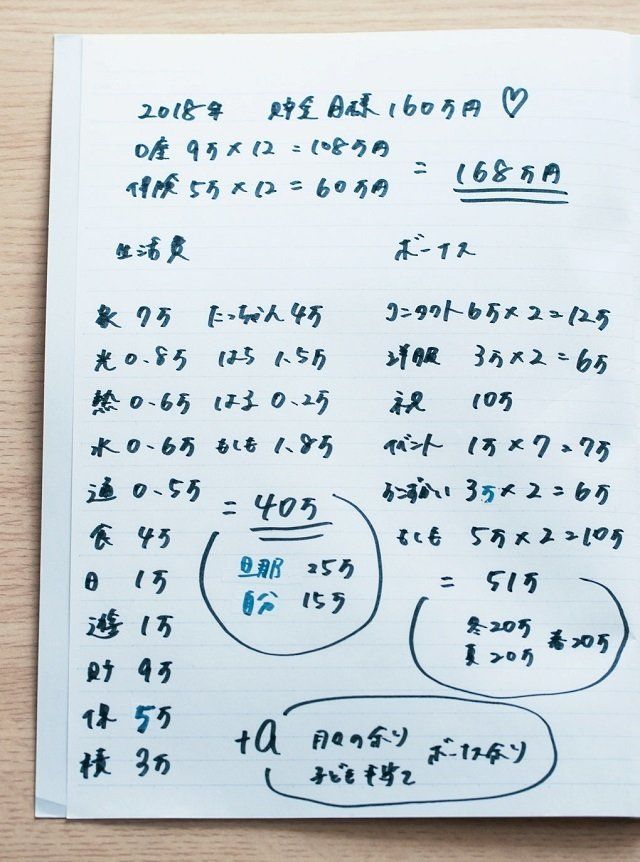 2018年 貯金目標160万円♡
口座 9万×12=108万円
保険 5万×12=60万円
= 168万円
生活費
家 7万
光 0.8万
熱 0.6万
水 0.6万
通 0.5万
食 4万
日 1万
遊 1万
貯 9万
保 5万
積 3万
たっちゃん 4万
はち 1.5万
はる 0.2万
もしも 1.8万
= 40万
旦那 25万
自分 15万
ボーナス
コンタクト 6万×2=12万
洋服 3万×2=6万
祝 10万
イベント 1万×7=7万
おこづかい 3万×2=6万
もしも 5万×2=10万
= 51万
冬20万
夏20万
春20万
+a
月々の余り
子ども手当て
ボーナス余り